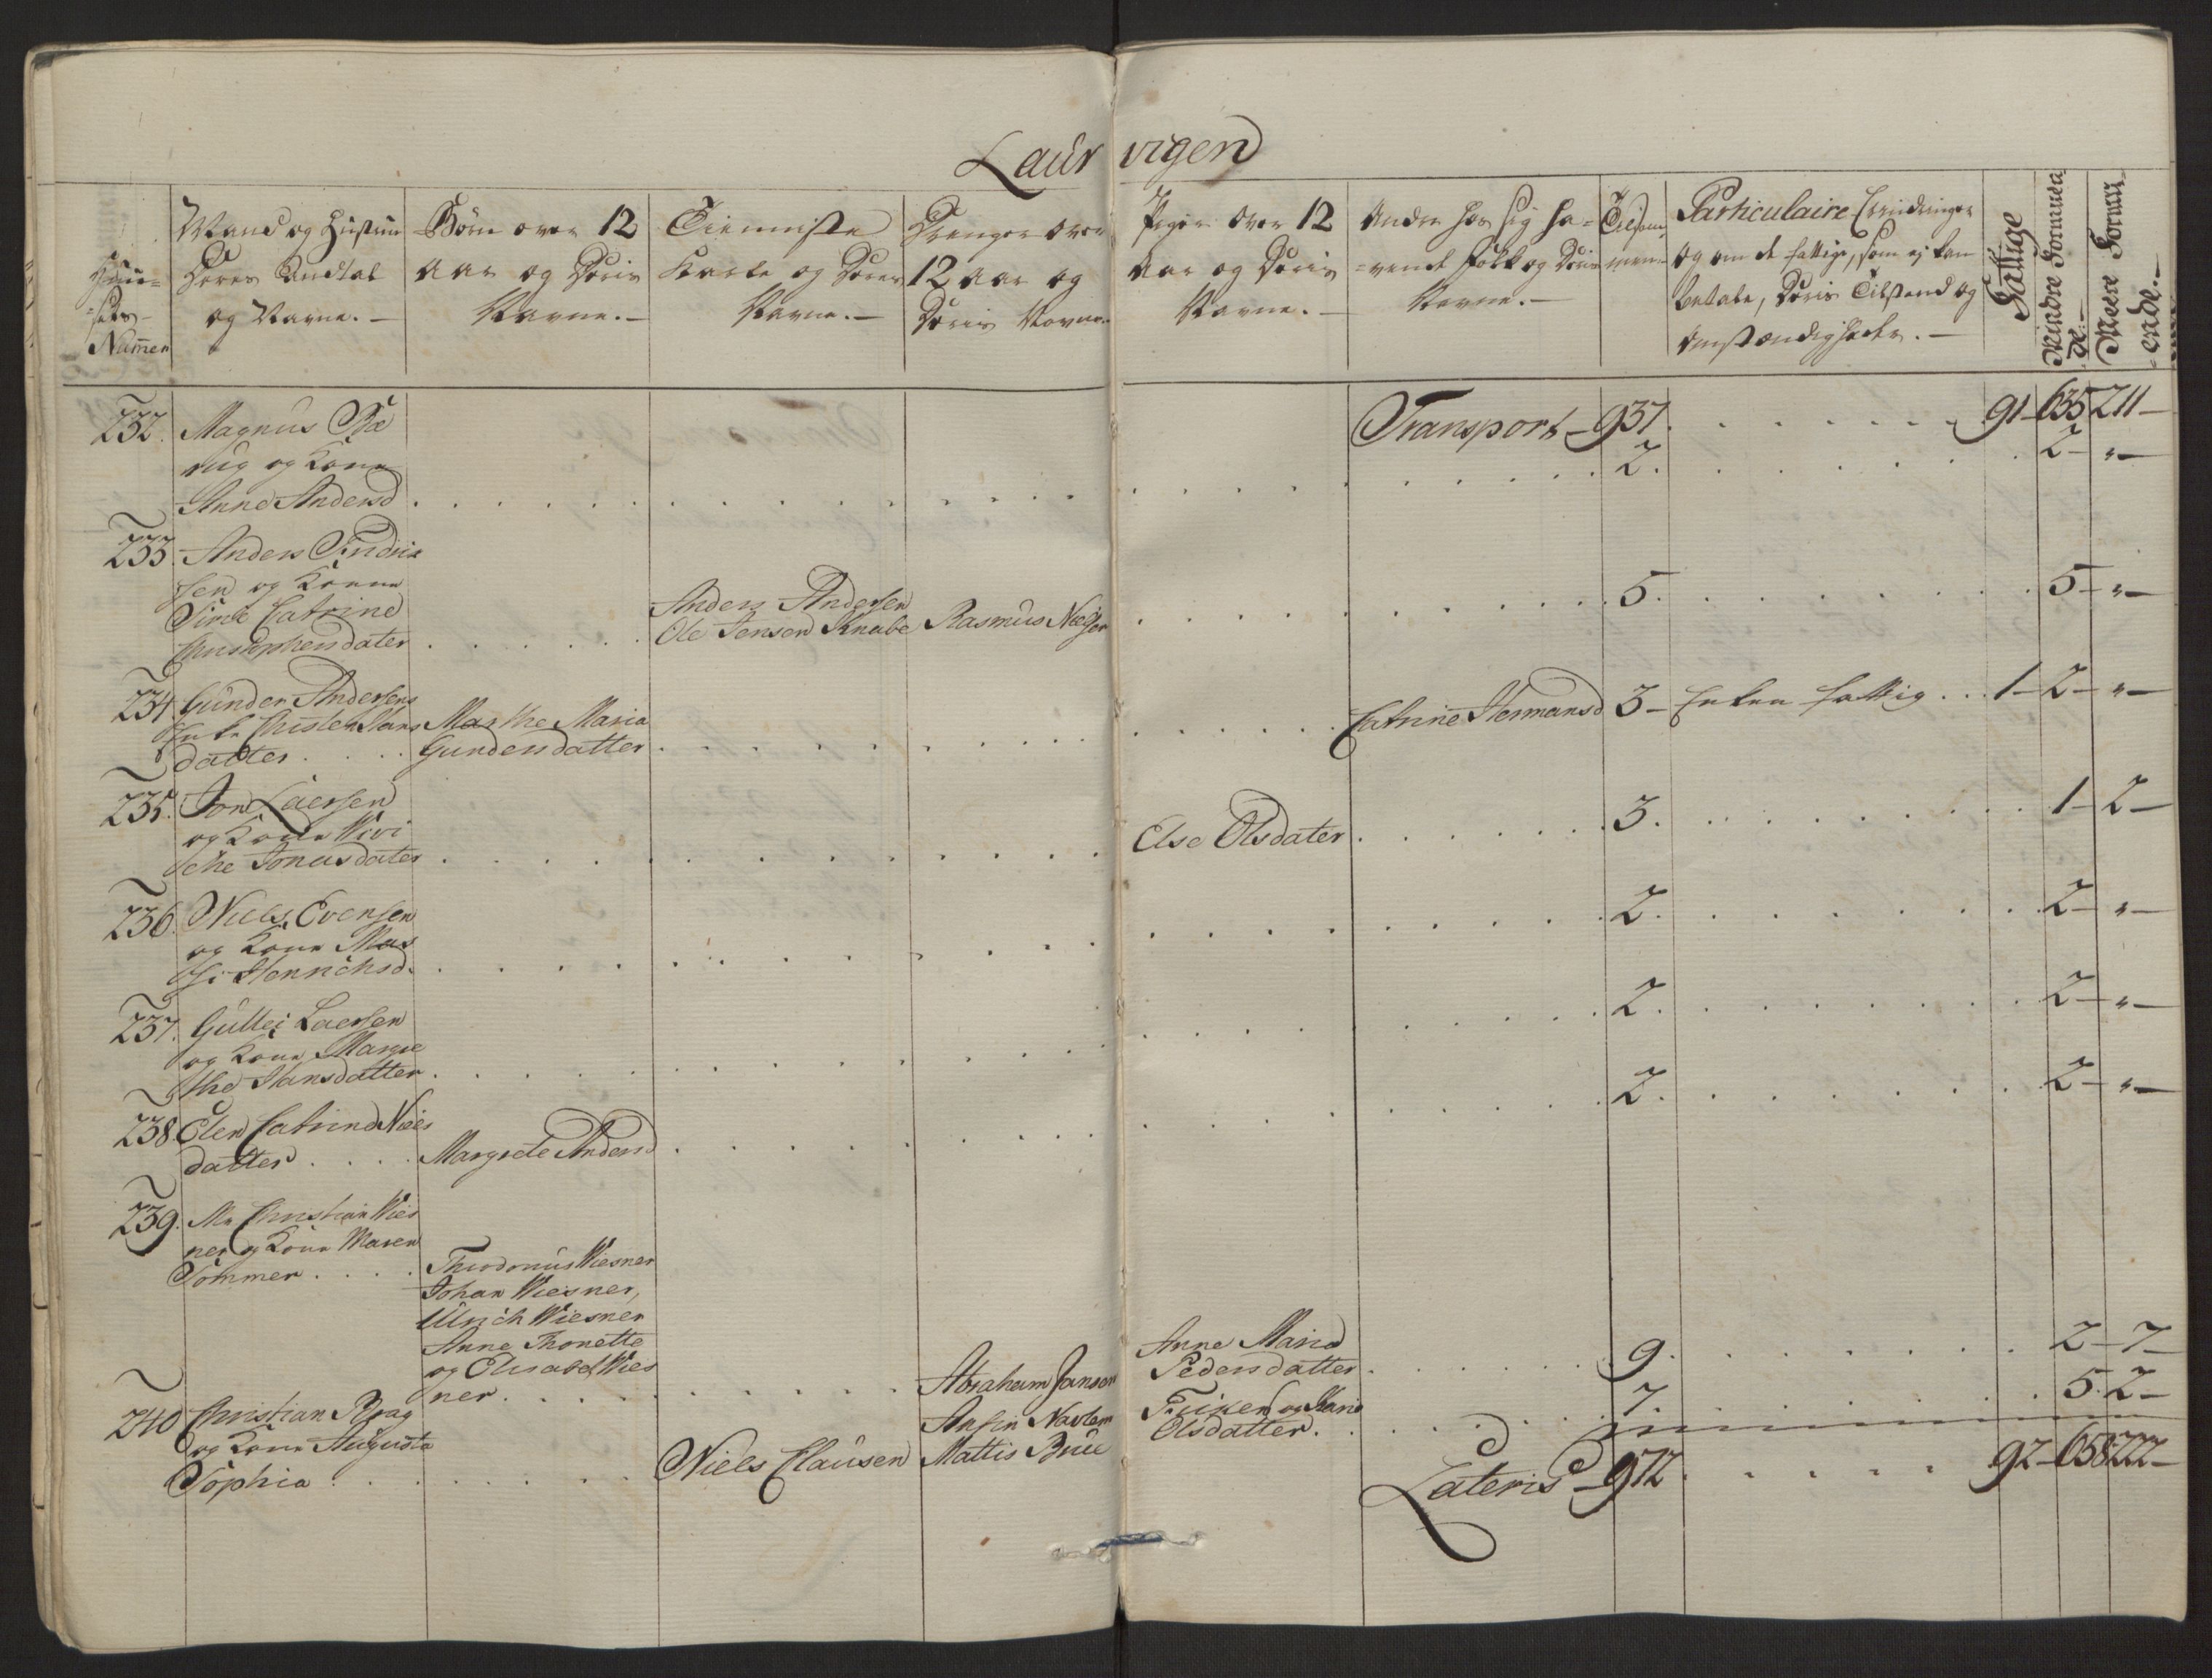 Laurvigen
Huu=
=sets
Numer
Mand og Hustrue
Deres Andtal
og Navne. —
Börn over 12
Aar og Deris
Navne. —
Tienniste
Karle og Deres
Navne. —
Drenger over
12 Aar og
Deris Navne.
Piger over 12
Aar og Deris
Navne. —
Andre hos sig ha=
=vende Folk og Deris
Navne. —
Tilsam
men
Particulaire Erindringer
og om de fattige, som ej kan
betale, Deris Tilstand og
Omstændigheder. —
Fattige
Mindre Formuen
de. —
Meere Formu
=ende. —
Transport — 937. 91 — 635 211 —
232. Magnus Bæ
rug og Kone
Anne Andersd 2. 2 — " —
233. Anders Findix
sen og Konne
Sine Catrine
Christophersdater
Anders Andersen
Ole Jensen Knabe
Rasmus Nielsen
5. 5 — " —
234. Gunder Andersens
Enke Christen Hans
datter
Marthe Maria
Gundersdatter
Catrine Hermansd 3 — Enken fattig 1 — 2 — " —
235. Jon Laersen
og Kone Wivi
che Jonasdater
Else Olsdater 3. 1 — 2 —
236. Niels Evensen
og Kone Mas
si Henrichsd. 2. 2 — " —
237. Gullei Laersen
og Kone Margre
the Hansdatter 2. 2 — " —
238. Elen Catrine Niels
datter
Margrete Andersd 2. 2 — " —
239. Mr Christian Wies
ner og Kone Maren
Sommer
Theodorus Wiesner
Johan Wiesner,
Ulrich Wiesner
Anne Thonette
og Elisabet Wies
ner
Abraham Jansen
Anne Maria
Pedersdatter 9. 2 — 7 —
240 Christian Brag
og Kone Augusta
Sophia
Niels Clausen
Anfin Navlem
Mattis Brue
Friken og Karie
Olsdatter. 7. 5. 2 —
Lateris — 972 92 — 658 222 —